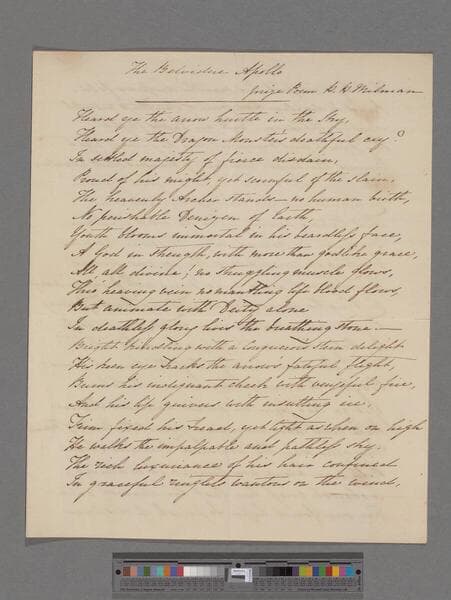 The Belvidere Apollo
prize Poem H. H Milman
Heard ye the arrow hurtle in the Sky,
Heard ye the Dragon Monster's deathful cry?
In settled majesty of fierce disdain,
Proud of his might, yet scornful of the slain,
The heavenly Archer stands – no human birth,
No perishable Denizen of Earth,
Youth blooms immortal in his beardless face,
A God in strength, with more than godlike grace,
All, all divine; no struggling muscle glows,
Thro' heaving vein no mantling life blood flows,
But animate with Deity alone
In deathless glory lives the breathing stone.—
Bright kindling with a conquerors stern delight
His keen eye tracks the arrows fateful flight,
Burns his indignant cheek with vengeful fire,
And his lip quivers with insulting ire,
Firm fixed his tread, yet light as when on high
He walks the impalpable and pathless sky.
The rich luxuriance of his hair confined
In graceful ringlets wantons on the wind,